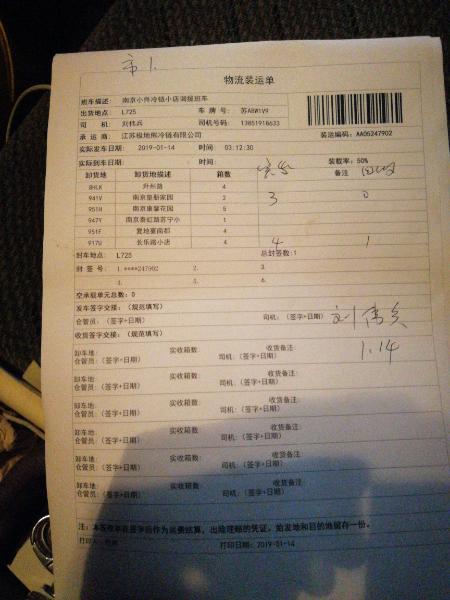 市1.
物流装运单
班车描述: 南京小件冷链小店调拨班车
出货地点: L725 车 牌 号: 苏A8W1V9
司 机: 刘伟兵 司机号码: 13851918633
承 运 商: 江苏极地熊冷链有限公司 装运编码: AA05247902
实际发车日期: 2019-01-14 时间: 03:12:30
实际到车日期: 时间: 装载率: 50%
卸货地 卸货地描述 箱数 实发 备注 回收
8HLK 升州路 4
941V 南京皇册家园 2 3 0
951H 南京康馨花园 5
947Y 南京泰虹路苏宁小 1
951F 复地宴南都 4
917U 长乐路小店 4 4 1
封车地点: L725 总封签数:1
封 签 号: 1.****247902 2. 3.
4. 5. 6.
空承载单元总数: 0
发车签字交接: (规范填写)
仓管员: (签字+日期) 司机: (签字+日期) 刘伟兵
收货签字交接: (规范填写) 1.14
卸车地: 实收箱数: 收货备注:
仓管员: (签字+日期) 司机: (签字+日期)
卸车地: 实收箱数: 收货备注:
仓管员: (签字+日期) 司机: (签字+日期)
卸车地: 实收箱数: 收货备注:
仓管员: (签字+日期) 司机: (签字+日期)
卸车地: 实收箱数: 收货备注:
仓管员: (签字+日期) 司机: (签字+日期)
卸车地: 实收箱数: 收货备注:
仓管员: (签字+日期) 司机: (签字+日期)
卸车地: 实收箱数: 收货备注:
仓管员: (签字+日期) 司机: (签字+日期)
注: 本签收单在签字后作为运费结算, 出险理赔的凭证。始发地和目的地留存一份。
打印人: 打印日期: 2019-01-14